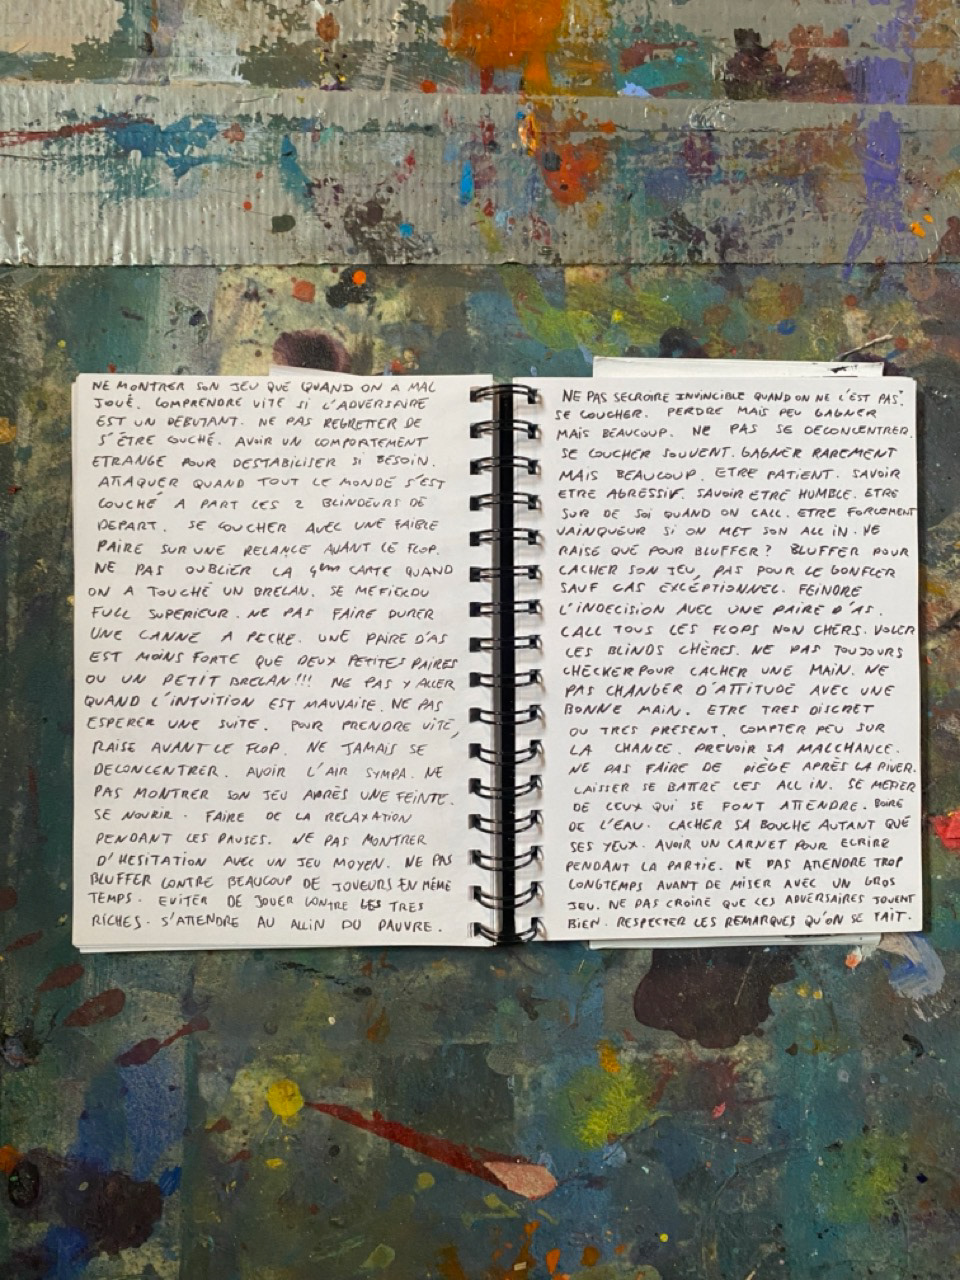 NE MONTRER SON JEU QUE QUAND ON A MAL
JOUÉ. COMPRENDRE VITE SI L'ADVERSAIRE
EST UN DEBUTANT. NE PAS REGRETTER DE
S'ÊTRE COUCHÉ. AVOIR UN COMPORTEMENT
ETRANGE POUR DESTABILISER SI BESOIN.
ATTAQUER QUAND TOUT LE MONDE S'EST
COUCHÉ A PART LES 2 BLINDEURS DE
DEPART. SE COUCHER AVEC UNE FAIBLE
PAIRE SUR UNE RELANCE AVANT LE FLOP.
NE PAS OUBLIER LA 4EME CARTE QUAND
ON A TOUCHÉ UN BRELAN. SE MEFIER DU
FULL SUPERIEUR. NE PAS FAIRE DURER
UNE CANNE A PECHE. UNE PAIRE D'AS
EST MOINS FORTE QUE DEUX PETITES PAIRES
OU UN PETIT BRELAN!!! NE PAS Y ALLER
QUAND L'INTUITION EST MAUVAISE. NE PAS
ESPERER UNE SUITE. POUR PRENDRE VITE,
RAISE AVANT LE FLOP. NE JAMAIS SE
DECONCENTRER. AVOIR L'AIR SYMPA. NE
PAS MONTRER SON JEU APRÈS UNE FEINTE.
SE NOURIR. FAIRE DE LA RELAXATION
PENDANT LES PAUSES. NE PAS MONTRER
D'HESITATION AVEC UN JEU MOYEN. NE PAS
BLUFFER CONTRE BEAUCOUP DE JOUEURS EN MÊME
TEMPS. EVITER DE JOUER CONTRE LES TRES
RICHES. S'ATTENDRE AU ALLIN DU PAUVRE.
NE PAS SE CROIRE INVINCIBLE QUAND ON NE L'EST PAS.
SE COUCHER. PERDRE MAIS PEU GAGNER
MAIS BEAUCOUP. NE PAS SE DECONCENTRER.
SE COUCHER SOUVENT. GAGNER RAREMENT
MAIS BEAUCOUP. ETRE PATIENT. SAVOIR
ETRE AGRESSIF. SAVOIR ETRE HUMBLE. ETRE
SUR DE SOI QUAND ON CALL. ETRE FORCEMENT
VAINQUEUR SI ON MET SON ALL IN. NE
RAISE QUE POUR BLUFFER? BLUFFER POUR
CACHER SON JEU, PAS POUR LE GONFLER
SAUF CAS EXCÉPTIONNEL. FEINDRE
L'INDECISION AVEC UNE PAIRE D'AS.
CALL TOUS LES FLOPS NON CHERS. VOLER
LES BLINDS CHÈRES. NE PAS TOUJOURS
CHECKER POUR CACHER UNE MAIN. NE
PAS CHANGER D'ATTITUDE AVEC UNE
BONNE MAIN. ETRE TRES DISCRET
OU TRES PRESENT. COMPTER PEU SUR
LA CHANCE. PREVOIR SA MALCHANCE.
NE PAS FAIRE DE PIÈGE APRÈS LA RIVER.
LAISSER SE BATTRE LES ALL IN. SE MEFIER
DE CEUX QUI SE FONT ATTENDRE. BOIRE
DE L'EAU. CACHER SA BOUCHE AUTANT QUE
SES YEUX. AVOIR UN CARNET POUR ECRIRE
PENDANT LA PARTIE. NE PAS ATTENDRE TROP
LONGTEMPS AVANT DE MISER AVEC UN GROS
JEU. NE PAS CROIRE QUE LES ADVERSAIRES JOUENT
BIEN. RESPECTER LES REMARQUES QU'ON SE FAIT.